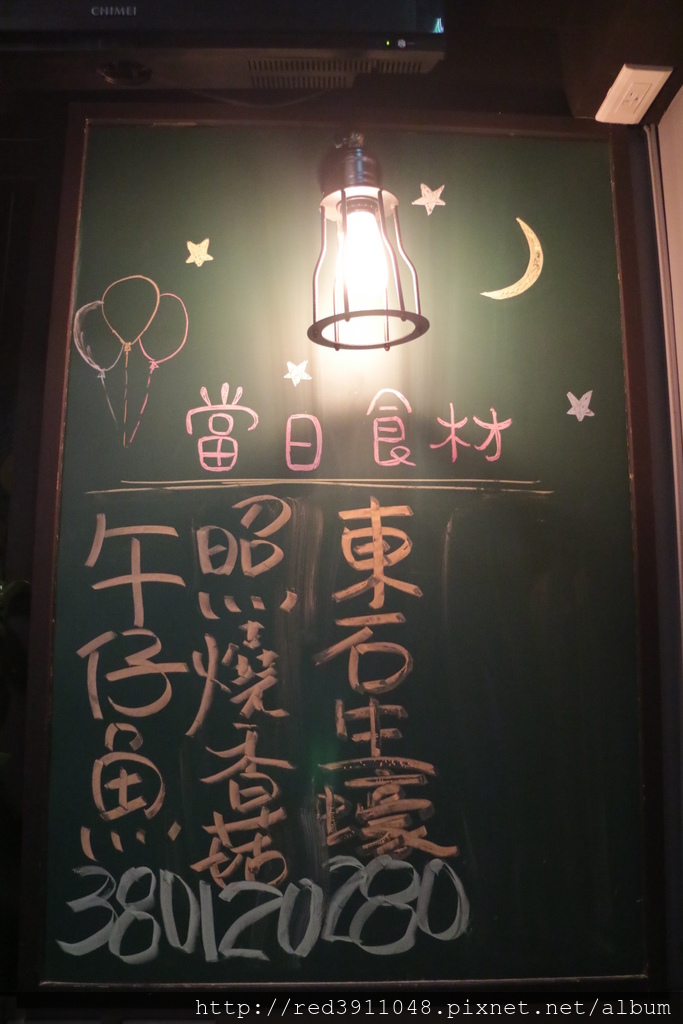 CHIMEI
當日食材
東石生蠔
280
照燒香菇
120
午仔魚
380
http://red3911048.pixnet.net/album